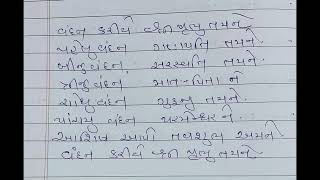 વંદન કરીયે શ્રી પ્રભુ તમને
પહેલુ વંદન ગણપતિ તમને.
બીજુ વંદન સરસ્વતિ તમને.
ત્રીજુ વંદન માત-પિતા ને
ચોથુ વંદન ગુરુજી તમને.
પાંચમુ વંદન પરમેશ્વર ને.
આશિષ આપો નવશુભ અમને
વંદન કરીયે શ્રી પ્રભુ તમને